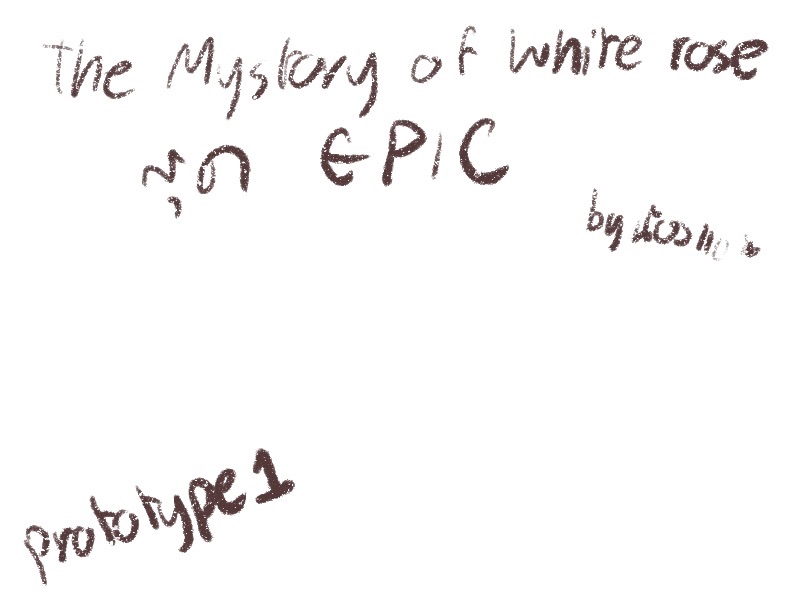 The Mystory of White rose
สุด EPIC
by
prototype 1